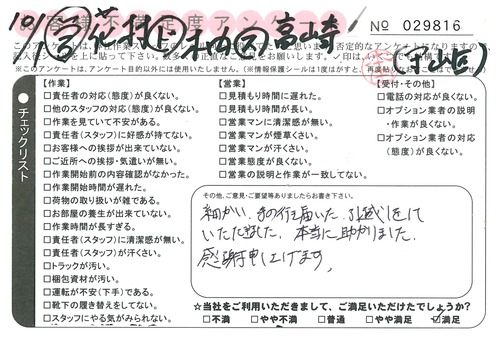 お客様不満足度アンケート
№ 029816
(守山区)
【作業】
□責任者の対応(態度)が良くない。
□他のスタッフの対応(態度)が良くない。
□作業を見ていて不安がある。
□責任者(スタッフ)に好感が持てない。
□お客様への挨拶が出来ていない。
□ご近所への挨拶・気遣いが無い。
□作業開始前の内容確認がなかった。
□作業開始時間が遅れた。
□荷物の取り扱いが雑である。
□お部屋の養生が出来ていない。
□作業時間が長すぎる。
□責任者(スタッフ)に清潔感が無い。
□責任者(スタッフ)が汗くさい。
□トラックが汚い。
□梱包資材が汚い。
□運転が不安(下手)である。
□靴下の履き替えをしてない。
□スタッフにやる気がみられない。
【営業】
□見積もり時間に遅れた。
□見積もり時間が長い。
□営業マンに清潔感が無い。
□営業マンが煙草くさい。
□営業マンが汗くさい。
□営業態度が良くない。
□営業の説明と作業が一致してない。
【受付・その他】
□電話の対応が良くない。
□オプション業者の説明
・作業が良くない。
□オプション業者の対応
(態度)が良くない。
チェックリスト
その他、ご意見・ご要望等ありましたらお書き下さい。
細かい、手の行き届いた、引越しをして
いただきました。本当に助かりました。
感謝申し上げます。
☆当社をご利用いただきまして、ご満足いただけたでしょうか?
□不満 □やや不満 □普通 □やや満足 □満足